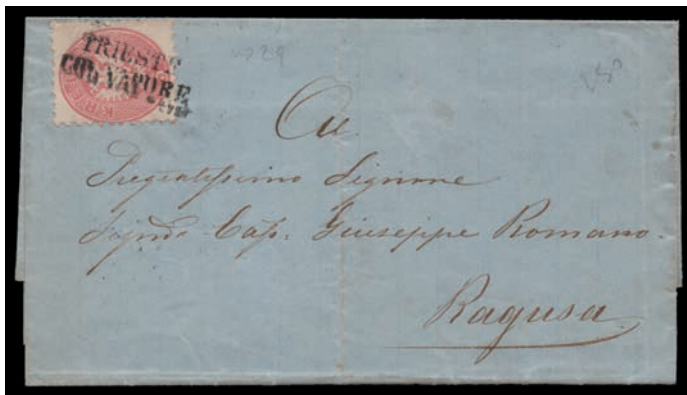 TRIEST
COL VAPORE
Pregiatissimo Signore
Cap. Giuseppe Romano
Ragusa